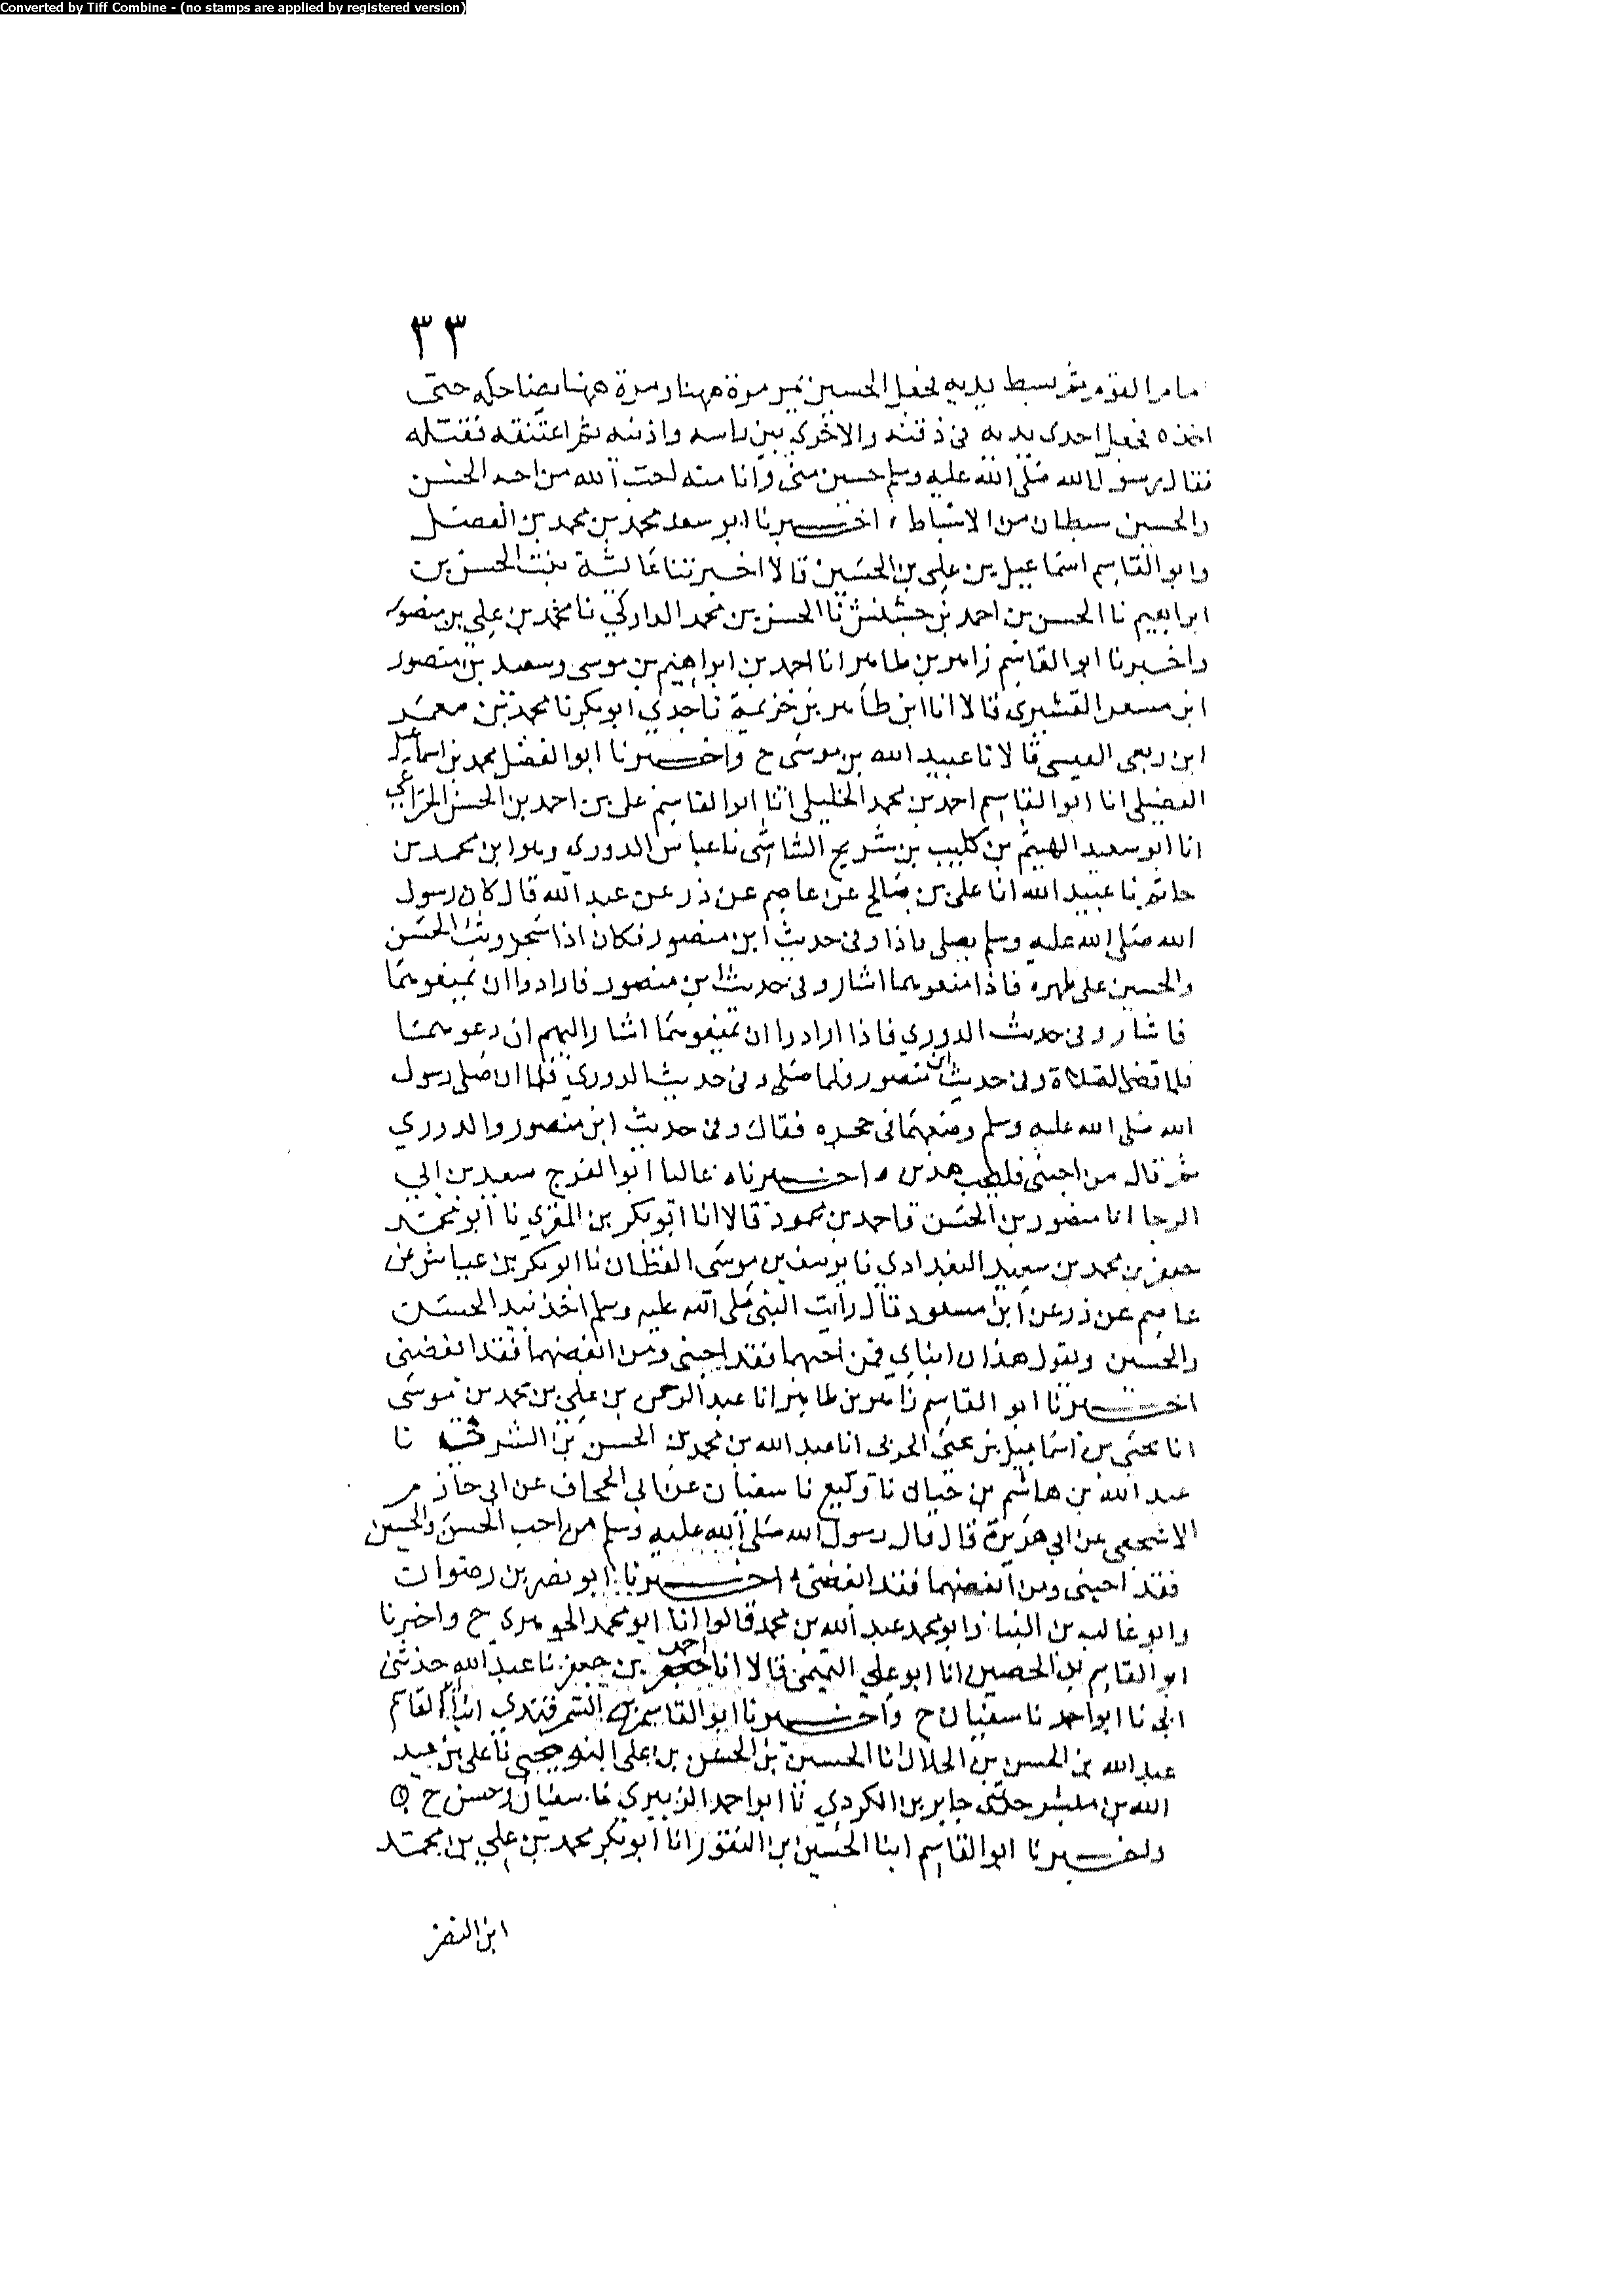 Converted by Tiff Combine - (no stamps are applied by registered version)
٣٣
امام القوم ثم بسط يديه فجعل الحسين يمر مرة ههنا ومرة ههنا يضاحكه حتى
اخذه فجعل احدى يديه في ذقنه والاخرى بين راسه واذنيه ثم اعتنقه فقبله
فقال رسول الله صلى الله عليه وسلم حسين مني وانا منه احب الله من احب الحسن
والحسين سبطان من الاسباط اخبرنا ابو سعد محمد بن محمد بن الفضل
وابو القاسم اسماعيل بن علي بن الحسين قالا اخبرتنا عائشة بنت الحسن بن
ابراهيم نا الحسن بن احمد بن حشنش نا الحسن بن محمد الداركي نا محمد بن علي بن منصور
واخبرنا ابو القاسم زاهر بن طاهر انا احمد بن ابراهيم بن موسى وسعيد بن منصور
ابن مسعر القشيري قالا انا ابن طاهر بن خزيمة نا جدي ابو بكر نا محمد بن معمر
ابن ربعي القيسي قالا نا عبيد الله بن موسى ح واخبرنا ابو الفضل محمد بن اسماعيل
الفضيلي انا ابو القاسم احمد بن محمد الخليلي انا ابو القاسم علي بن احمد بن الحسن الخزاعي
انا ابو سعيد الهيثم بن كليب بن شريح الشاشي نا عباس الدوري وهو ابن محمد بن
حاتم نا عبيد الله انا علي بن صالح عن عاصم عن زر عن عبد الله قال كان رسول
الله صلى الله عليه وسلم يصلي فاذا وفي حديث ابن منصور فكان اذا سجد وثب الحسن
والحسين على ظهره فاذا منعوهما اشار وفي حديث ابن منصور فارادوا ان يمنعوهما
فاشار وفي حديث الدوري فاذا ارادوا ان يمنعوهما اشار اليهم ان دعوهما
فلما قضى الصلاة وفي حديث ابن منصور فلما صلى وفي حديث الدوري فلما ان صلى رسول
الله صلى الله عليه وسلم وضعهما في حجره فقال وفي حديث ابن منصور والدوري
ثم قال من احبني فليحب هذين اخبرناه عاليا ابو الفرج سعيد بن ابي
الرجا انا منصور بن الحسن واحمد بن محمود قالا انا ابو بكر بن المقري نا ابو محمد
جعفر بن محمد بن سعيد البغدادي نا يوسف بن موسى القطان نا ابو بكر بن عياش عن
عاصم عن زر عن ابن مسعود قال رايت النبي صلى الله عليه وسلم اخذ بيد الحسن
والحسين ويقول هذان ابناي فمن احبهما فقد احبني ومن ابغضهما فقد ابغضني
اخبرنا ابو القاسم زاهر بن طاهر انا عبد الرحمن بن علي بن محمد بن موسى
انا يحيى بن اسماعيل بن يحيى الحربي انا عبد الله بن محمد بن الحسن بن الشرقي نا
عبد الله بن هاشم بن حيان نا وكيع نا سفيان عن ابي الجحاف عن ابي حازم
الاشجعي عن ابي هريرة قال قال رسول الله صلى الله عليه وسلم من احب الحسن والحسين
فقد احبني ومن ابغضهما فقد ابغضني اخبرنا ابو نصر بن رضوان
وابو غالب بن البنا وابو محمد عبد الله بن محمد قالوا انا ابو محمد الجوهري ح واخبرنا
ابو القاسم بن الحصين انا ابو علي التميمي قالا انا احمد بن جعفر نا عبد الله حدثني
ابي نا ابو احمد نا سفيان ح واخبرنا ابو القاسم بن السمرقندي انا ابو القاسم
عبد الله بن الحسن بن الخلال انا الحسين بن الحسن بن علي النوبختي نا علي بن عبد
الله بن مبشر حدثني جابر بن الكردي نا ابو احمد الزبيري نا سفيان ح
واخبرنا ابو القاسم ابنا الحسين ابن النقور انا ابو بكر محمد بن علي بن محمد
ابن النضر